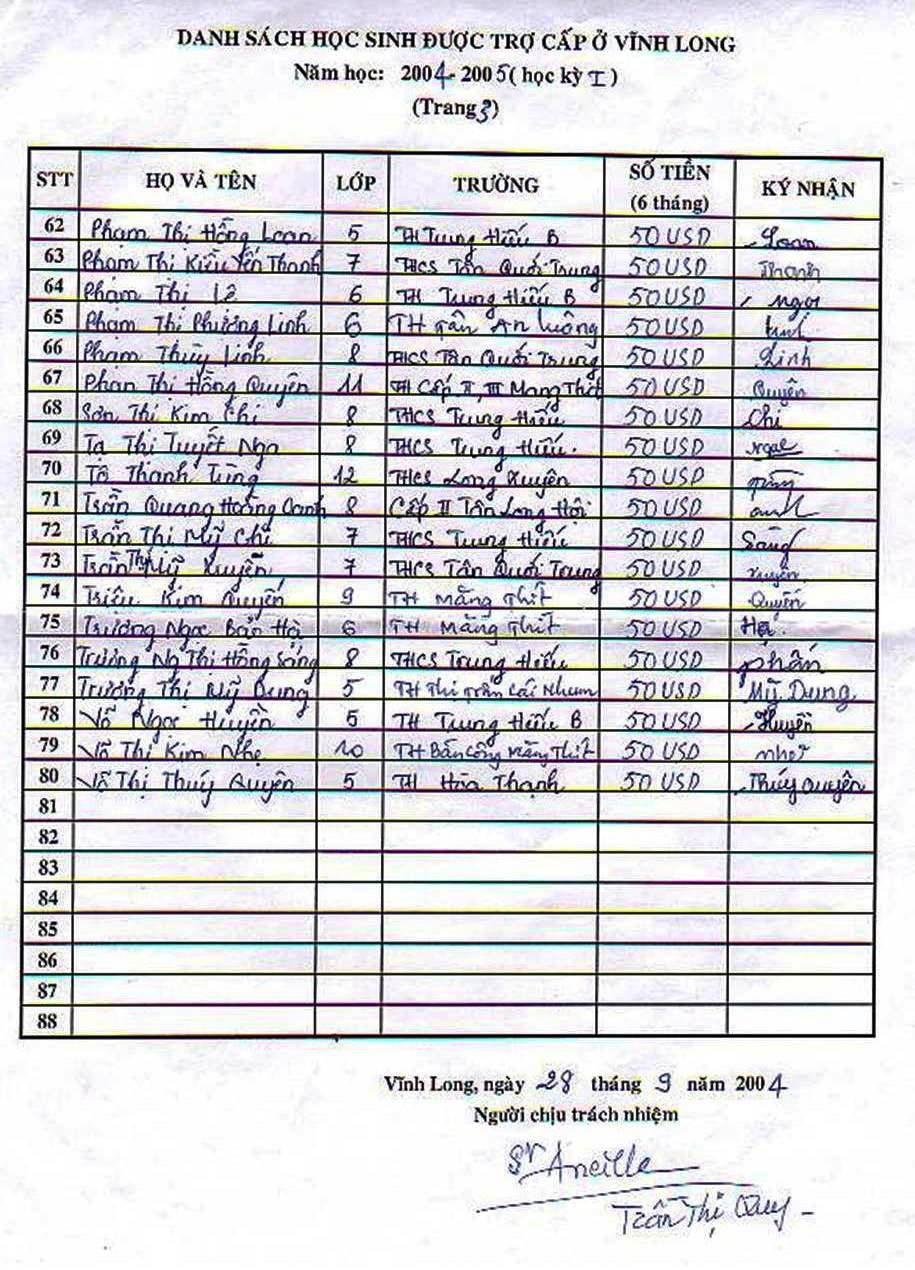 DANH SÁCH HỌC SINH ĐƯỢC TRỢ CẤP Ở VĨNH LONG
Năm học: 2004-2005 (học kỳ I)
(Trang 3)
STT HỌ VÀ TÊN LỚP TRƯỜNG SỐ TIỀN (6 tháng) KÝ NHẬN
62 Phạm Thị Hồng Loan 5 TH Trung Hiếu B 50 USD Loan
63 Phạm Thị Kiều Yến Thanh 7 THCS Tân Quới Trung 50 USD Thanh
64 Phạm Thị Lê 6 TH Trung Hiếu B 50 USD
65 Phạm Thị Phương Linh 6 TH Tân An Luông 50 USD Linh
66 Phạm Thùy Linh 8 THCS Tân Quới Trung 50 USD Linh
67 Phan Thị Hồng Quyên 11 TH Cấp II, III Mang Thít 50 USD Quyên
68 Sơn Thị Kim Chi 8 THCS Trung Hiếu 50 USD Chi
69 Tạ Thị Tuyết Nga 8 THCS Trung Hiếu. 50 USD
70 Tô Thanh Tùng 12 THCS Long Xuyên 50 USD
71 Trần Quang Hoàng Oanh 8 Cấp II Tân Long Hội 50 USD anh
72 Trần Thị Mỹ Chi 7 THCS Trung Hiếu 50 USD Sáng
73 Trần Thị Mỹ Xuyên 7 THCS Tân Quới Trung 50 USD Xuyên
74 Triệu Kim Quyến 9 TH Măng Thít 50 USD Quyến
75 Trương Ngọc Bảo Hạ 6 TH Măng Thít 50 USD Hạ.
76 Trương Ng Thị Hồng Sáng 8 THCS Trung Hiếu 50 USD phấn
77 Trương Thị Mỹ Dung 5 TH Thị trấn Cái Nhum 50 USD Mỹ Dung
78 Võ Ngọc Huyền 5 TH Trung Hiếu B 50 USD Huyền
79 Võ Thị Kim Nhẹ 10 TH Bán Công Măng Thít 50 USD
80 Võ Thị Thúy Quyên 5 TH Hòa Thạnh 50 USD Thúy Quyên
81
82
83
84
85
86
87
88
Vĩnh Long, ngày 28 tháng 9 năm 2004
Người chịu trách nhiệm
Sr Ancilla
Trần Thị Quy